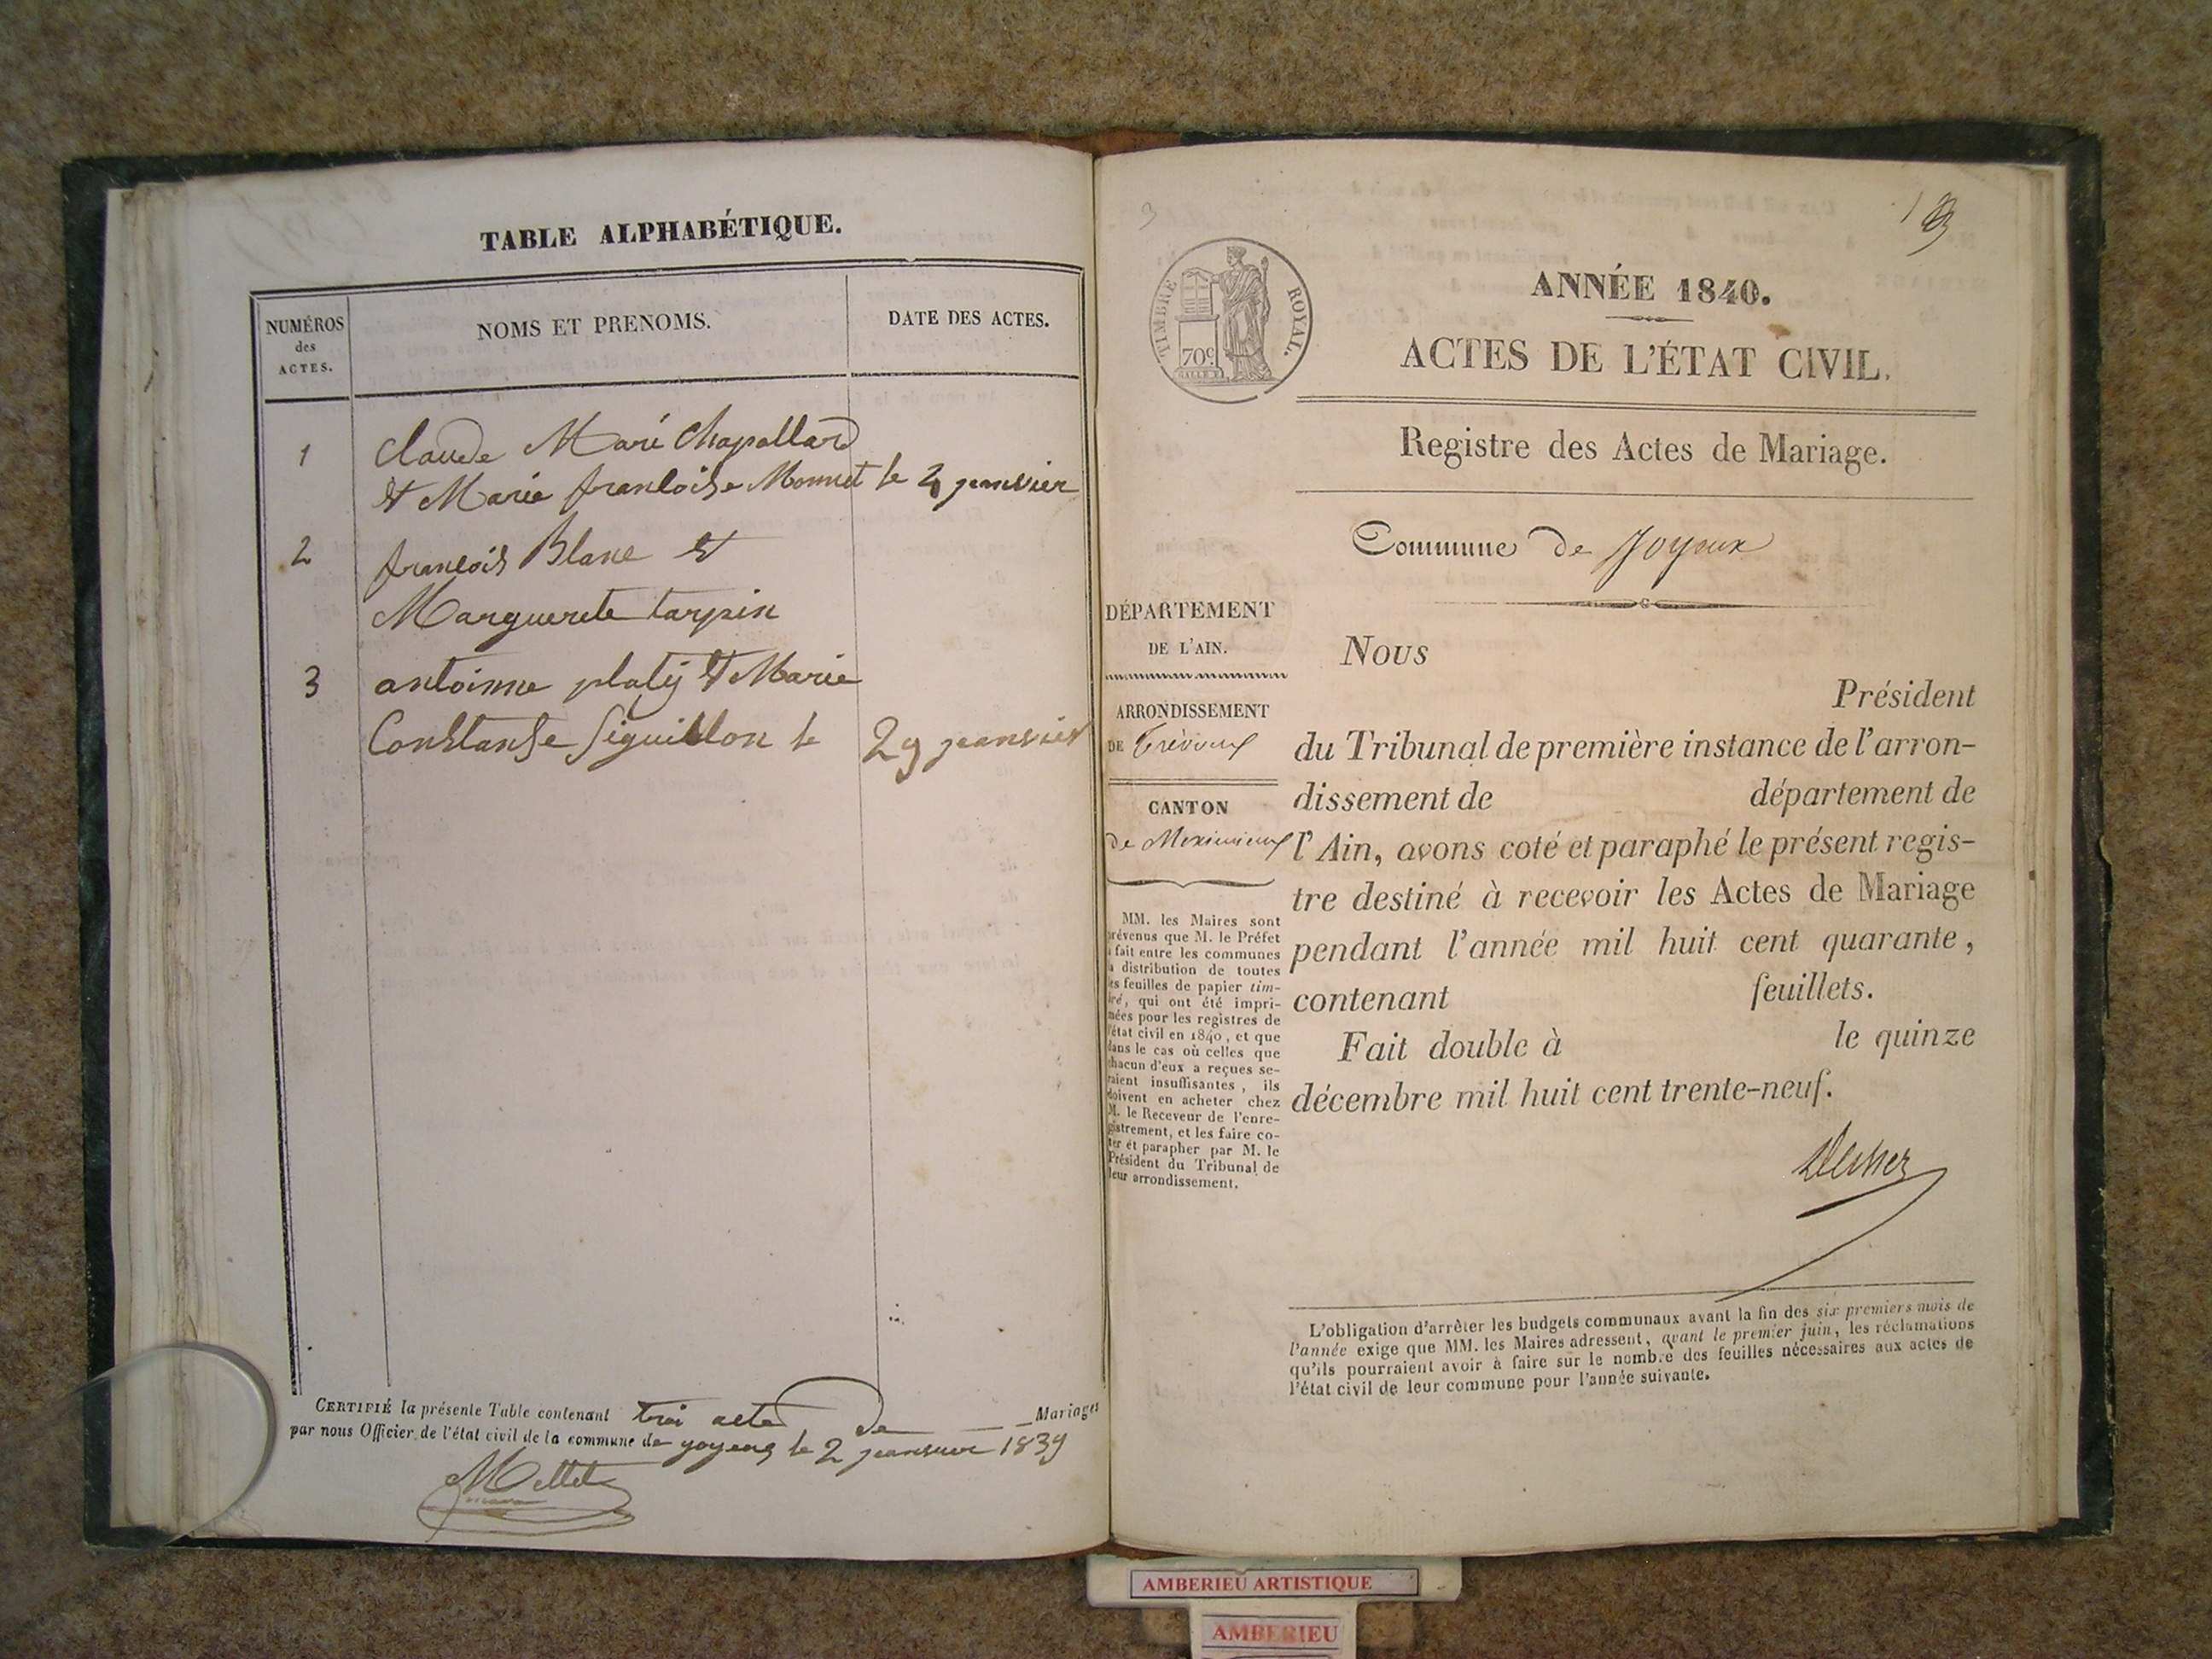 TABLE ALPHABÉTIQUE.
NUMÉROS
des
ACTES.
NOMS ET PRENOMS.
DATE DES ACTES.
1 Claude Marie Chapollard
et Marie francoise Monnet le 4 janvier
2 francois Blanc et
Marguerete tarpin
3 antoinne platy et Marie
Constanse Siguillon le 29 jeanvier
CERTIFIÉ la présente Table contenant troi acte de Mariages
par nous Officier de l'état civil de la commune de yoyeux le 2 jeanvier 1839
Mollet
3
TIMBRE ROYAL.
70c.
ANNÉE 1840.
ACTES DE L'ÉTAT CIVIL.
Registre des Actes de Mariage.
Commune de Joyeux
DÉPARTEMENT
DE L'AIN.
ARRONDISSEMENT
DE Trévoux
CANTON
de Meximieux
MM. les Maires sont
prévenus que M. le Préfet
a fait entre les communes
la distribution de toutes
les feuilles de papier tim-
bré, qui ont été impri-
mées pour les registres de
l'état civil en 1840, et que
dans le cas où celles que
chacun d'eux a reçues se-
raient insuffisantes, ils
doivent en acheter chez
M. le Receveur de l'enre-
gistrement, et les faire co-
ter et parapher par M. le
Président du Tribunal de
leur arrondissement.
Nous
Président
du Tribunal de première instance de l'arron-
dissement de département de
l'Ain, avons coté et paraphé le présent regis-
tre destiné à recevoir les Actes de Mariage
pendant l'année mil huit cent quarante,
contenant feuillets.
Fait double à le quinze
décembre mil huit cent trente-neuf.
L'obligation d'arrêter les budgets communaux avant la fin des six premiers mois de
l'année exige que MM. les Maires adressent, avant le premier juin, les réclamations
qu'ils pourraient avoir à faire sur le nombre des feuilles nécessaires aux actes de
l'état civil de leur commune pour l'année suivante.
AMBERIEU ARTISTIQUE
AMBERIEU